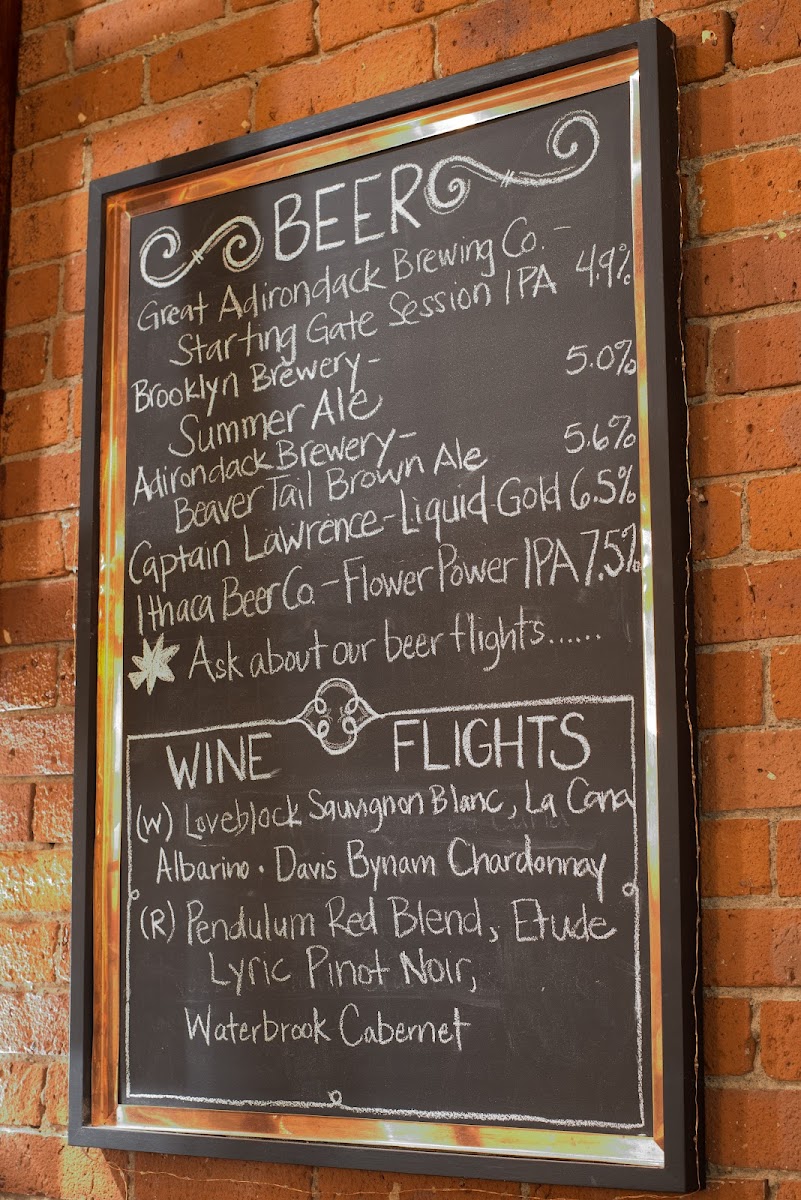 BEER
Great Adirondack Brewing Co. -
Starting Gate Session IPA 4.9%
Brooklyn Brewery -
Summer Ale 5.0%
Adirondack Brewery -
Beaver Tail Brown Ale 5.6%
Captain Lawrence - Liquid Gold 6.5%
Ithaca Beer Co. - Flower Power IPA 7.5%
Ask about our beer flights......
WINE FLIGHTS
(W) Loveblock Sauvignon Blanc, La Cana
Albarino · Davis Bynam Chardonnay
(R) Pendulum Red Blend, Etude
Lyric Pinot Noir,
Waterbrook Cabernet